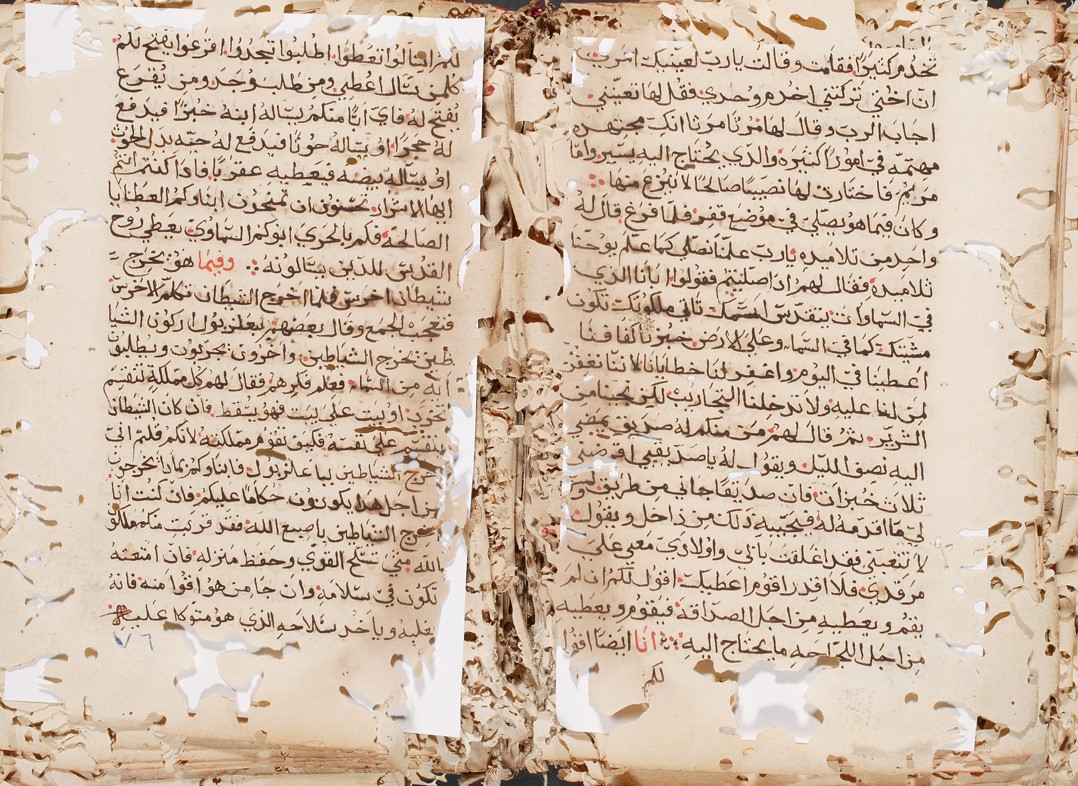 تخدم كثيرا فقامت وقالت يارب لعينيك امر ان
ان اختي تركتني اخدم وحدي فقل لها تعينني
اجاب الرب وقال لها مرثا مرثا انك مجتهده
مهتمه في امور كثيره والذي يحتاج اليه يسير واما
مريم فاختارت لها نصيبا صالحا لا ينزع منها
وكان فيما هو يصلي في موضع قفر فلما فرغ قال له
واحد من تلاميده يارب علمنا نصلي كما علم يوحنا
تلاميده فقال لهم اذا صليتم فقولوا ابانا الذي
في السماوات يتقدس اسمك تاتي ملكوتك تكون
مشيتك كما في السماء وعلي الارض خبزنا كفافنا
اعطينا في اليوم واغفر لنا خطايانا لاننا نغفر
لمن لنا عليه ولا تدخلنا التجارب لكن نجينا من
الشرير ثم قال لهم من منكم له صديق يمضي
اليه نصف الليل ويقول له ياصديقي اقرضني
ثلاث خبزات فان صديقا جاني من طريق وليس
لي ما اقدمه له فيجيبه ذلك من داخل ويقول
لا تتعبني فقد اغلقت بابي واولادي معي علي
مرقدي فلا اقدر اقوم اعطيك اقول لكم ان لم
يقم ويعطيه من اجل الصداقه فيقوم ويعطيه
من اجل اللجاجه ما يحتاج اليه انا ايضا اقول
لكم
لكم اسالوا تعطوا اطلبوا تجدوا اقرعوا يفتح لكم
كلمن يسال اعطي ومن طلب وجد ومن يقرع
يفتح له فاي ابا منكم يساله ابنه خبزا فيدفع
له حجرا او يساله حوتا فيدفع له حيه بدل الحوت
او يساله بيضه فيعطيه عقربا فاذا كنتم انتم
ايها الاشرار تحسنون ان تمنحون ابناوكم العطايا
الصالحه فكم بالحري ابوكم السماوي يعطي روح
القدس للذين يسالونه وفيما هو يخرج
شيطان اخرس فلما اخرج الشيطان تكلم الاخرس
فتعجب الجمع وقال بعضهم ببعلزبول اركون الشيا
طين يخرج الشياطين واخرون يجربون ويطلبون
ايه من السماء فعلم فكرهم فقال لهم كل مملكة تنقسم
تخرب او بيت علي بيت فهو يسقط فان كان الشيطان
ينقسم علي نفسه فكيف تقوم مملكته لانكم قلتم اني
اخرج الشياطين بباعلزبول فابناوكم بماذا يخرجون
من اجل هدا يكونون حكاما عليكم فان كنت انا
اخرج الشياطين باصبع الله فقد قربت منكم ملكوت
الله متي تسلح القوي وحفظ منزله فان امتعته
تكون في سلامه وان جا من هو اقوا منه فانه
يغلبه وياخد سلاحه الذي هو متوكلا عليه
٧٦